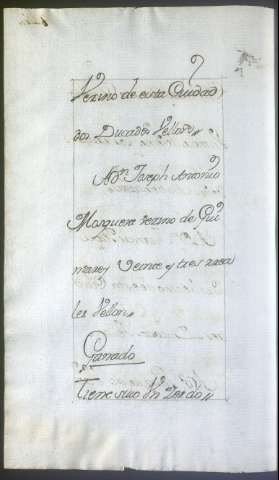 Vezino de esta Ciudad
dos Ducados Vellon
A Dn Joseph Antonio
Mosquera vezino de Gui
marey Veinte y tres rrea
les Vellon
Ganado
Tiene suio Un Zerdo